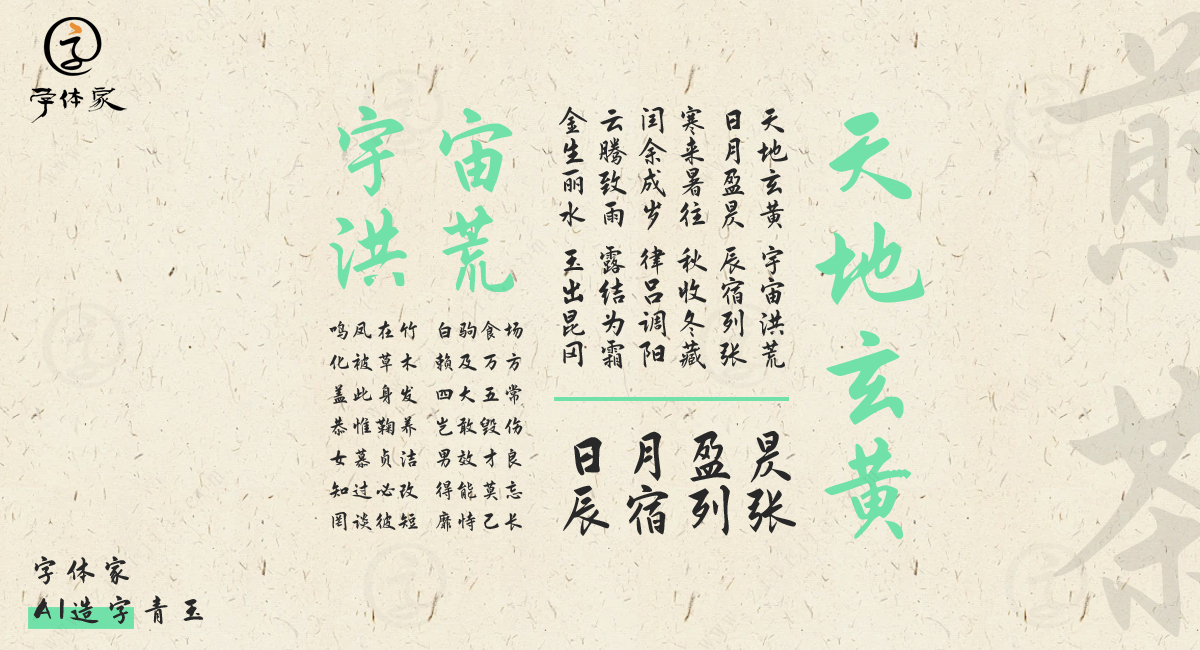 字体家
煎茶
天地玄黄
天地玄黄 宇宙洪荒
日月盈昃 辰宿列张
寒来暑往 秋收冬藏
闰余成岁 律吕调阳
云腾致雨 露结为霜
金生丽水 玉出昆冈
日月盈昃
辰宿列张
宇宙
洪荒
鸣凤在竹 白驹食场
化被草木 赖及万方
盖此身发 四大五常
恭惟鞠养 岂敢毁伤
女慕贞洁 男效才良
知过必改 得能莫忘
罔谈彼短 靡恃己长
字体家
AI造字青玉